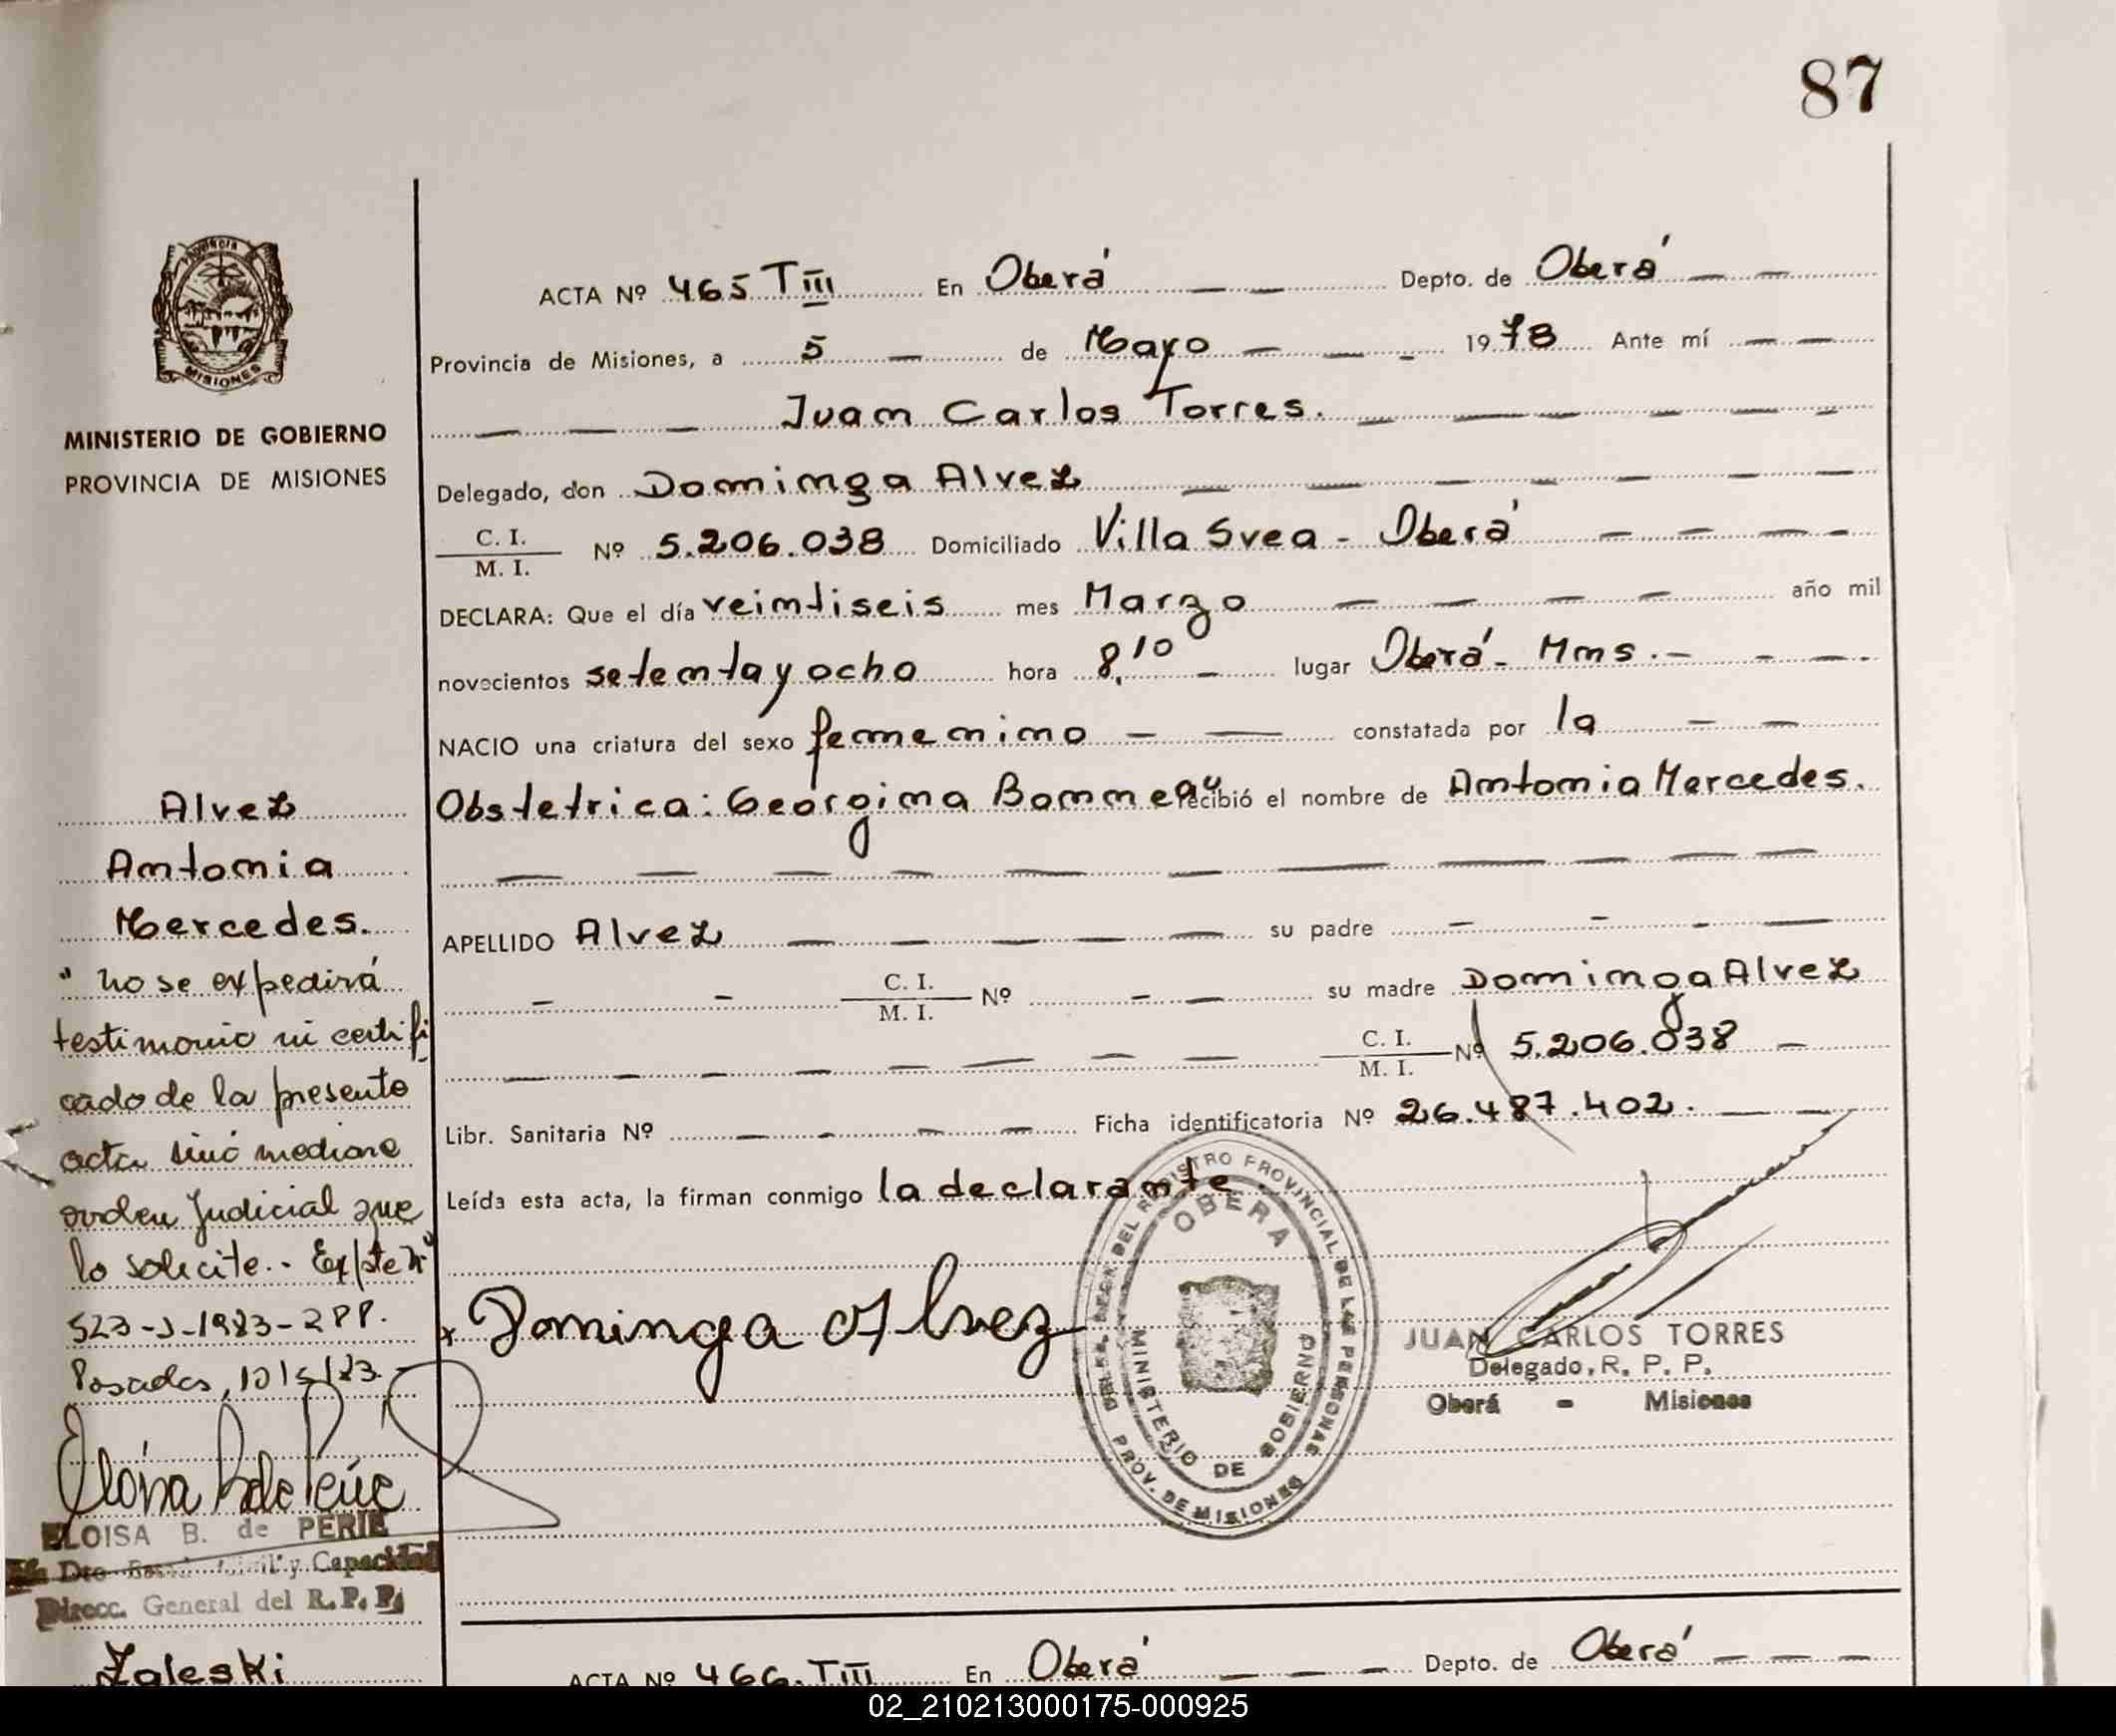 87
Provincia
MISIONES
MINISTERIO DE GOBIERNO
PROVINCIA DE MISIONES
ACTA Nº 465 TIII En Oberá Depto. de Oberá
Provincia de Misiones, a 5 de Mayo 1978 Ante mí
Juan Carlos Torres.
Delegado, don Dominga Alvez
C. I. / M. I. Nº 5.206.038 Domiciliado Villa Svea - Oberá
DECLARA: Que el día veintiseis mes Marzo año mil
novecientos setenta y ocho hora 8,10 lugar Oberá - Mnes.-
NACIO una criatura del sexo femenino constatada por la
Obstetrica: Georgina Bonneau recibió el nombre de Antonia Mercedes.
APELLIDO Alvez su padre
C. I. / M. I. Nº su madre Dominga Alvez
C. I. / M. I. Nº 5.206.038
Libr. Sanitaria Nº Ficha identificatoria Nº 26.487.402.
Leída esta acta, la firman conmigo la declarante
x Dominga Alvez
OBERA
MINISTERIO DE GOBIERNO
DEL REGISTRO PROVINCIAL DE LAS PERSONAS
PROV. DE MISIONES
JUAN CARLOS TORRES
Delegado, R. P. P.
Oberá - Misiones
Alvez
Antonia
Mercedes.
" no se expedirá
testimonio ni certifi
cado de la presente
acta sinó mediane
orden Judicial que
lo solicite.- Expte Nº
523-J-1983-RPP.
Posadas, 10/5/83.
ELOISA B. de PERIE
Dto. Civil y Capacidad
Direcc. General del R. P. P.
Zaleski
ACTA Nº 466 TIII En Oberá Depto. de Oberá
02_210213000175-000925